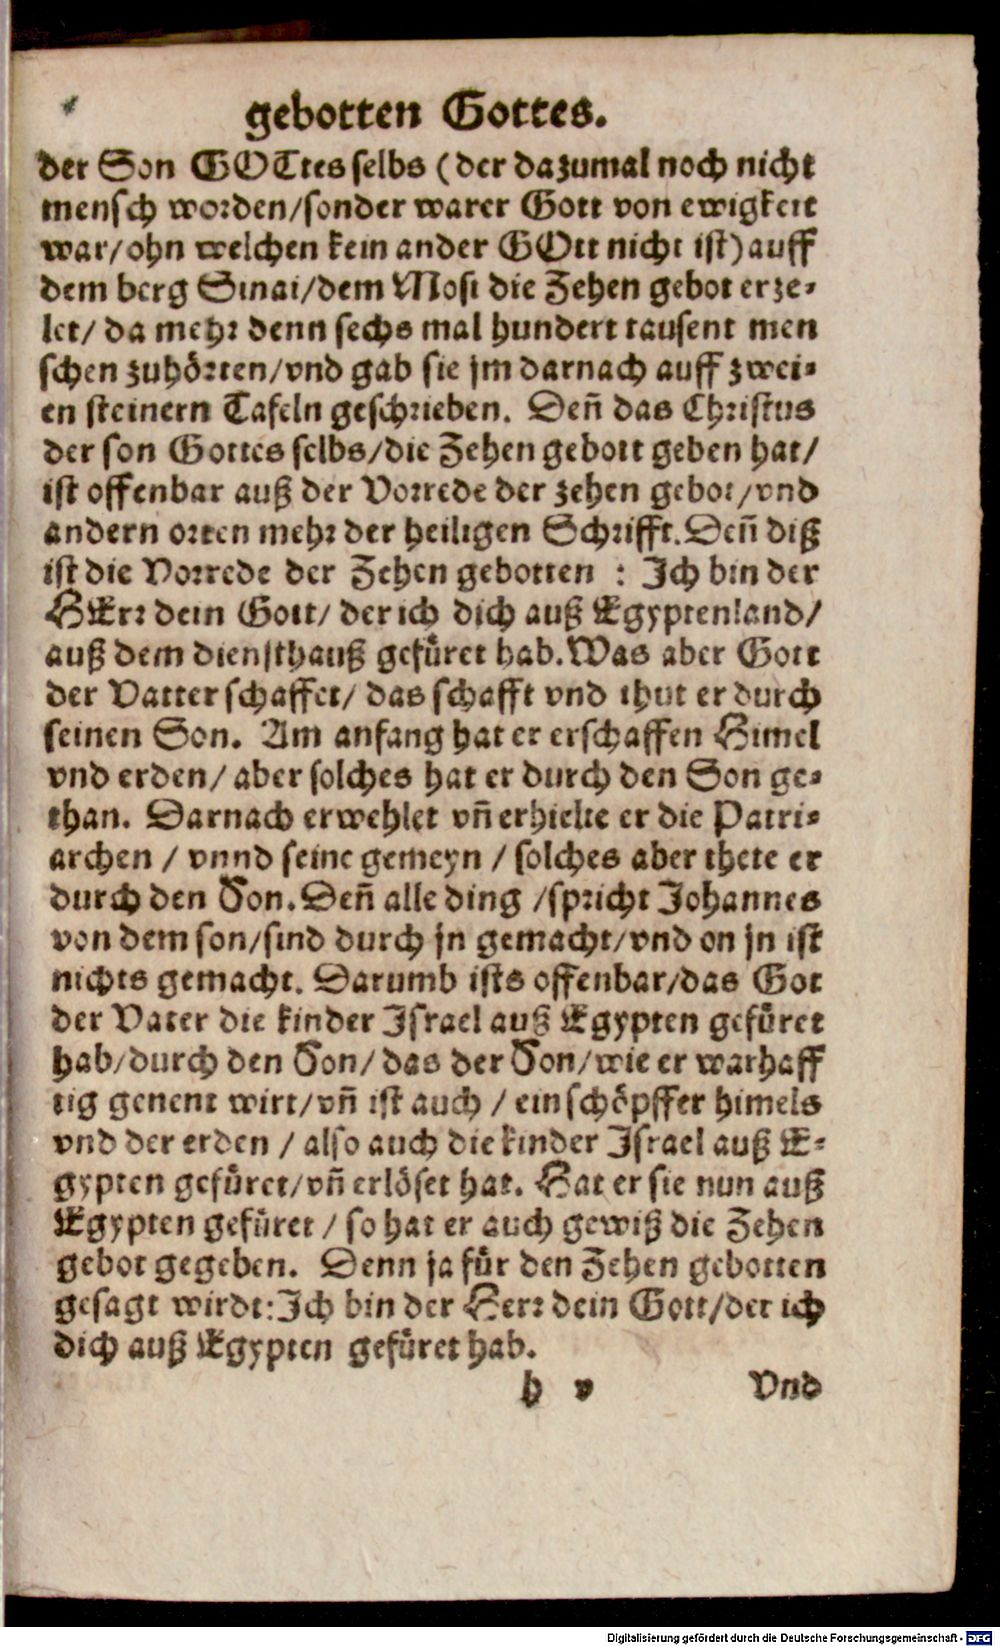 gebotten Gottes.
der Son GOTtes selbs (der dazumal noch nicht
mensch worden/sonder warer Gott von ewigkeit
war/ohn welchen kein ander GOtt nicht ist) auff
dem berg Sinai/dem Mosi die Zehen gebot erze-
let/ da mehr denn sechs mal hundert tausent men
schen zuhörten/vnd gab sie jm darnach auff zwei-
en steinern Tafeln geschrieben. Deñ das Christus
der son Gottes selbs/die Zehen gebott geben hat/
ist offenbar auß der Vorrede der zehen gebot/vnd
andern orten mehr der heiligen Schrifft. Deñ diß
ist die Vorrede der Zehen gebotten : Ich bin der
HErr dein Gott/ der ich dich auß Egyptenland/
auß dem diensthauß gefüret hab. Was aber Gott
der Vatter schaffet/ das schafft vnd thut er durch
seinen Son. Am anfang hat er erschaffen Himel
vnd erden/ aber solches hat er durch den Son ge-
than. Darnach erwehlet vñ erhielte er die Patri-
archen / vnnd seine gemeyn / solches aber thete er
durch den Son. Deñ alle ding /spricht Johannes
von dem son/sind durch jn gemacht/vnd on jn ist
nichts gemacht. Darumb ists offenbar/das Got
der Vater die kinder Israel auß Egypten gefüret
hab/durch den Son/ das der Son/wie er warhaff
tig genent wirt/vñ ist auch / ein schöpffer himels
vnd der erden / also auch die kinder Israel auß E-
gypten gefüret/vñ erlöset hat. Hat er sie nun auß
Egypten gefüret / so hat er auch gewiß die Zehen
gebot gegeben. Denn ja für den Zehen gebotten
gesagt wirdt: Ich bin der Herr dein Gott/der ich
dich auß Egypten gefüret hab.
h v Vnd
Digitalisierung gefördert durch die Deutsche Forschungsgemeinschaft - DFG